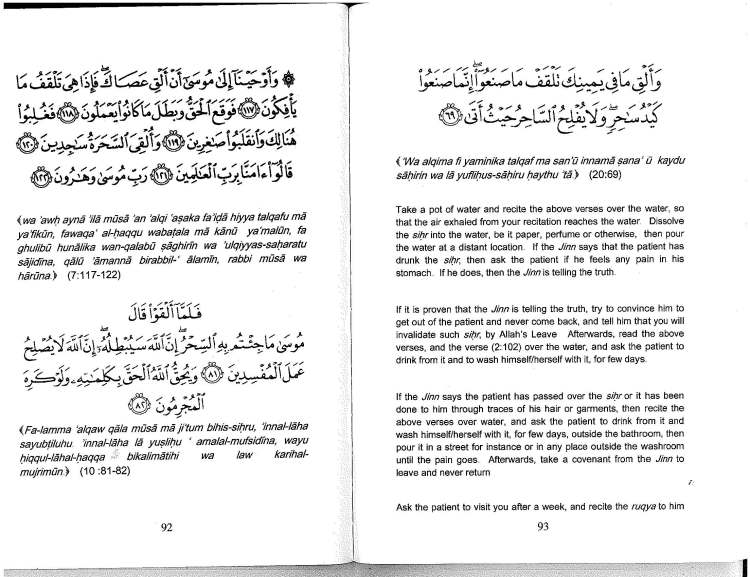 ۞ وَأَوْحَيْنَآ إِلَىٰ مُوسَىٰٓ أَنْ أَلْقِ عَصَاكَ ۖ فَإِذَا هِىَ تَلْقَفُ مَا
يَأْفِكُونَ ﴿١١٧﴾ فَوَقَعَ ٱلْحَقُّ وَبَطَلَ مَا كَانُوا۟ يَعْمَلُونَ ﴿١١٨﴾ فَغُلِبُوا۟
هُنَالِكَ وَٱنقَلَبُوا۟ صَٰغِرِينَ ﴿١١٩﴾ وَأُلْقِىَ ٱلسَّحَرَةُ سَٰجِدِينَ ﴿١٢٠﴾
قَالُوٓا۟ ءَامَنَّا بِرَبِّ ٱلْعَٰلَمِينَ ﴿١٢١﴾ رَبِّ مُوسَىٰ وَهَٰرُونَ ﴿١٢٢﴾
﴾wa 'awḥ aynā 'ilā mūsā 'an 'alqi 'aṣaka fa'iḏā hiyya talqafu mā
ya'fikūn, fawaqa' al-ḥaqqu wabaṭala mā kānū ya'malūn, fa
ghulibū hunālika wan-qalabū ṣāghirīn wa 'ulqiyyas-saḥaratu
sājidīna, qālū 'āmannā birabbil-' ālamīn, rabbi mūsā wa
hārūna.﴿ (7:117-122)
فَلَمَّآ أَلْقَوْا۟ قَالَ
مُوسَىٰ مَا جِئْتُم بِهِ ٱلسِّحْرُ ۖ إِنَّ ٱللَّهَ سَيُبْطِلُهُۥٓ ۖ إِنَّ ٱللَّهَ لَا يُصْلِحُ
عَمَلَ ٱلْمُفْسِدِينَ ﴿٨١﴾ وَيُحِقُّ ٱللَّهُ ٱلْحَقَّ بِكَلِمَٰتِهِۦ وَلَوْ كَرِهَ
ٱلْمُجْرِمُونَ ﴿٨٢﴾
﴾Fa-lamma 'alqaw qāla mūsā mā ji'tum bihis-siḥru, 'innal-lāha
sayubṭiluhu 'innal-lāha lā yuṣliḥu ' amalal-mufsidīna, wayu
ḥiqqul-lāhal-ḥaqqa bikalimātihi wa law karihal-
mujrimūn.﴿ (10 :81-82)
92
وَأَلْقِ مَا فِى يَمِينِكَ تَلْقَفْ مَا صَنَعُوٓا۟ ۖ إِنَّمَا صَنَعُوا۟
كَيْدُ سَٰحِرٍ ۖ وَلَا يُفْلِحُ ٱلسَّاحِرُ حَيْثُ أَتَىٰ ﴿٦٩﴾
﴾'Wa alqima fi yaminika talqaf ma san'ū innamā ṣana' ū kaydu
sāḥirin wa lā yufliḥus-sāhiru ḥaythu 'tā﴿ (20:69)
Take a pot of water and recite the above verses over the water, so
that the air exhaled from your recitation reaches the water. Dissolve
the siḥr into the water, be it paper, perfume or otherwise, then pour
the water at a distant location. If the Jinn says that the patient has
drunk the siḥr, then ask the patient if he feels any pain in his
stomach. If he does, then the Jinn is telling the truth.
If it is proven that the Jinn is telling the truth, try to convince him to
get out of the patient and never come back, and tell him that you will
invalidate such siḥr, by Allah's Leave Afterwards, read the above
verses, and the verse (2:102) over the water, and ask the patient to
drink from it and to wash himself/herself with it, for few days.
If the Jinn says the patient has passed over the siḥr or it has been
done to him through traces of his hair or garments, then recite the
above verses over water, and ask the patient to drink from it and
wash himself/herself with it, for few days, outside the bathroom, then
pour it in a street for instance or in any place outside the washroom
until the pain goes. Afterwards, take a covenant from the Jinn to
leave and never return
Ask the patient to visit you after a week, and recite the ruqya to him
93